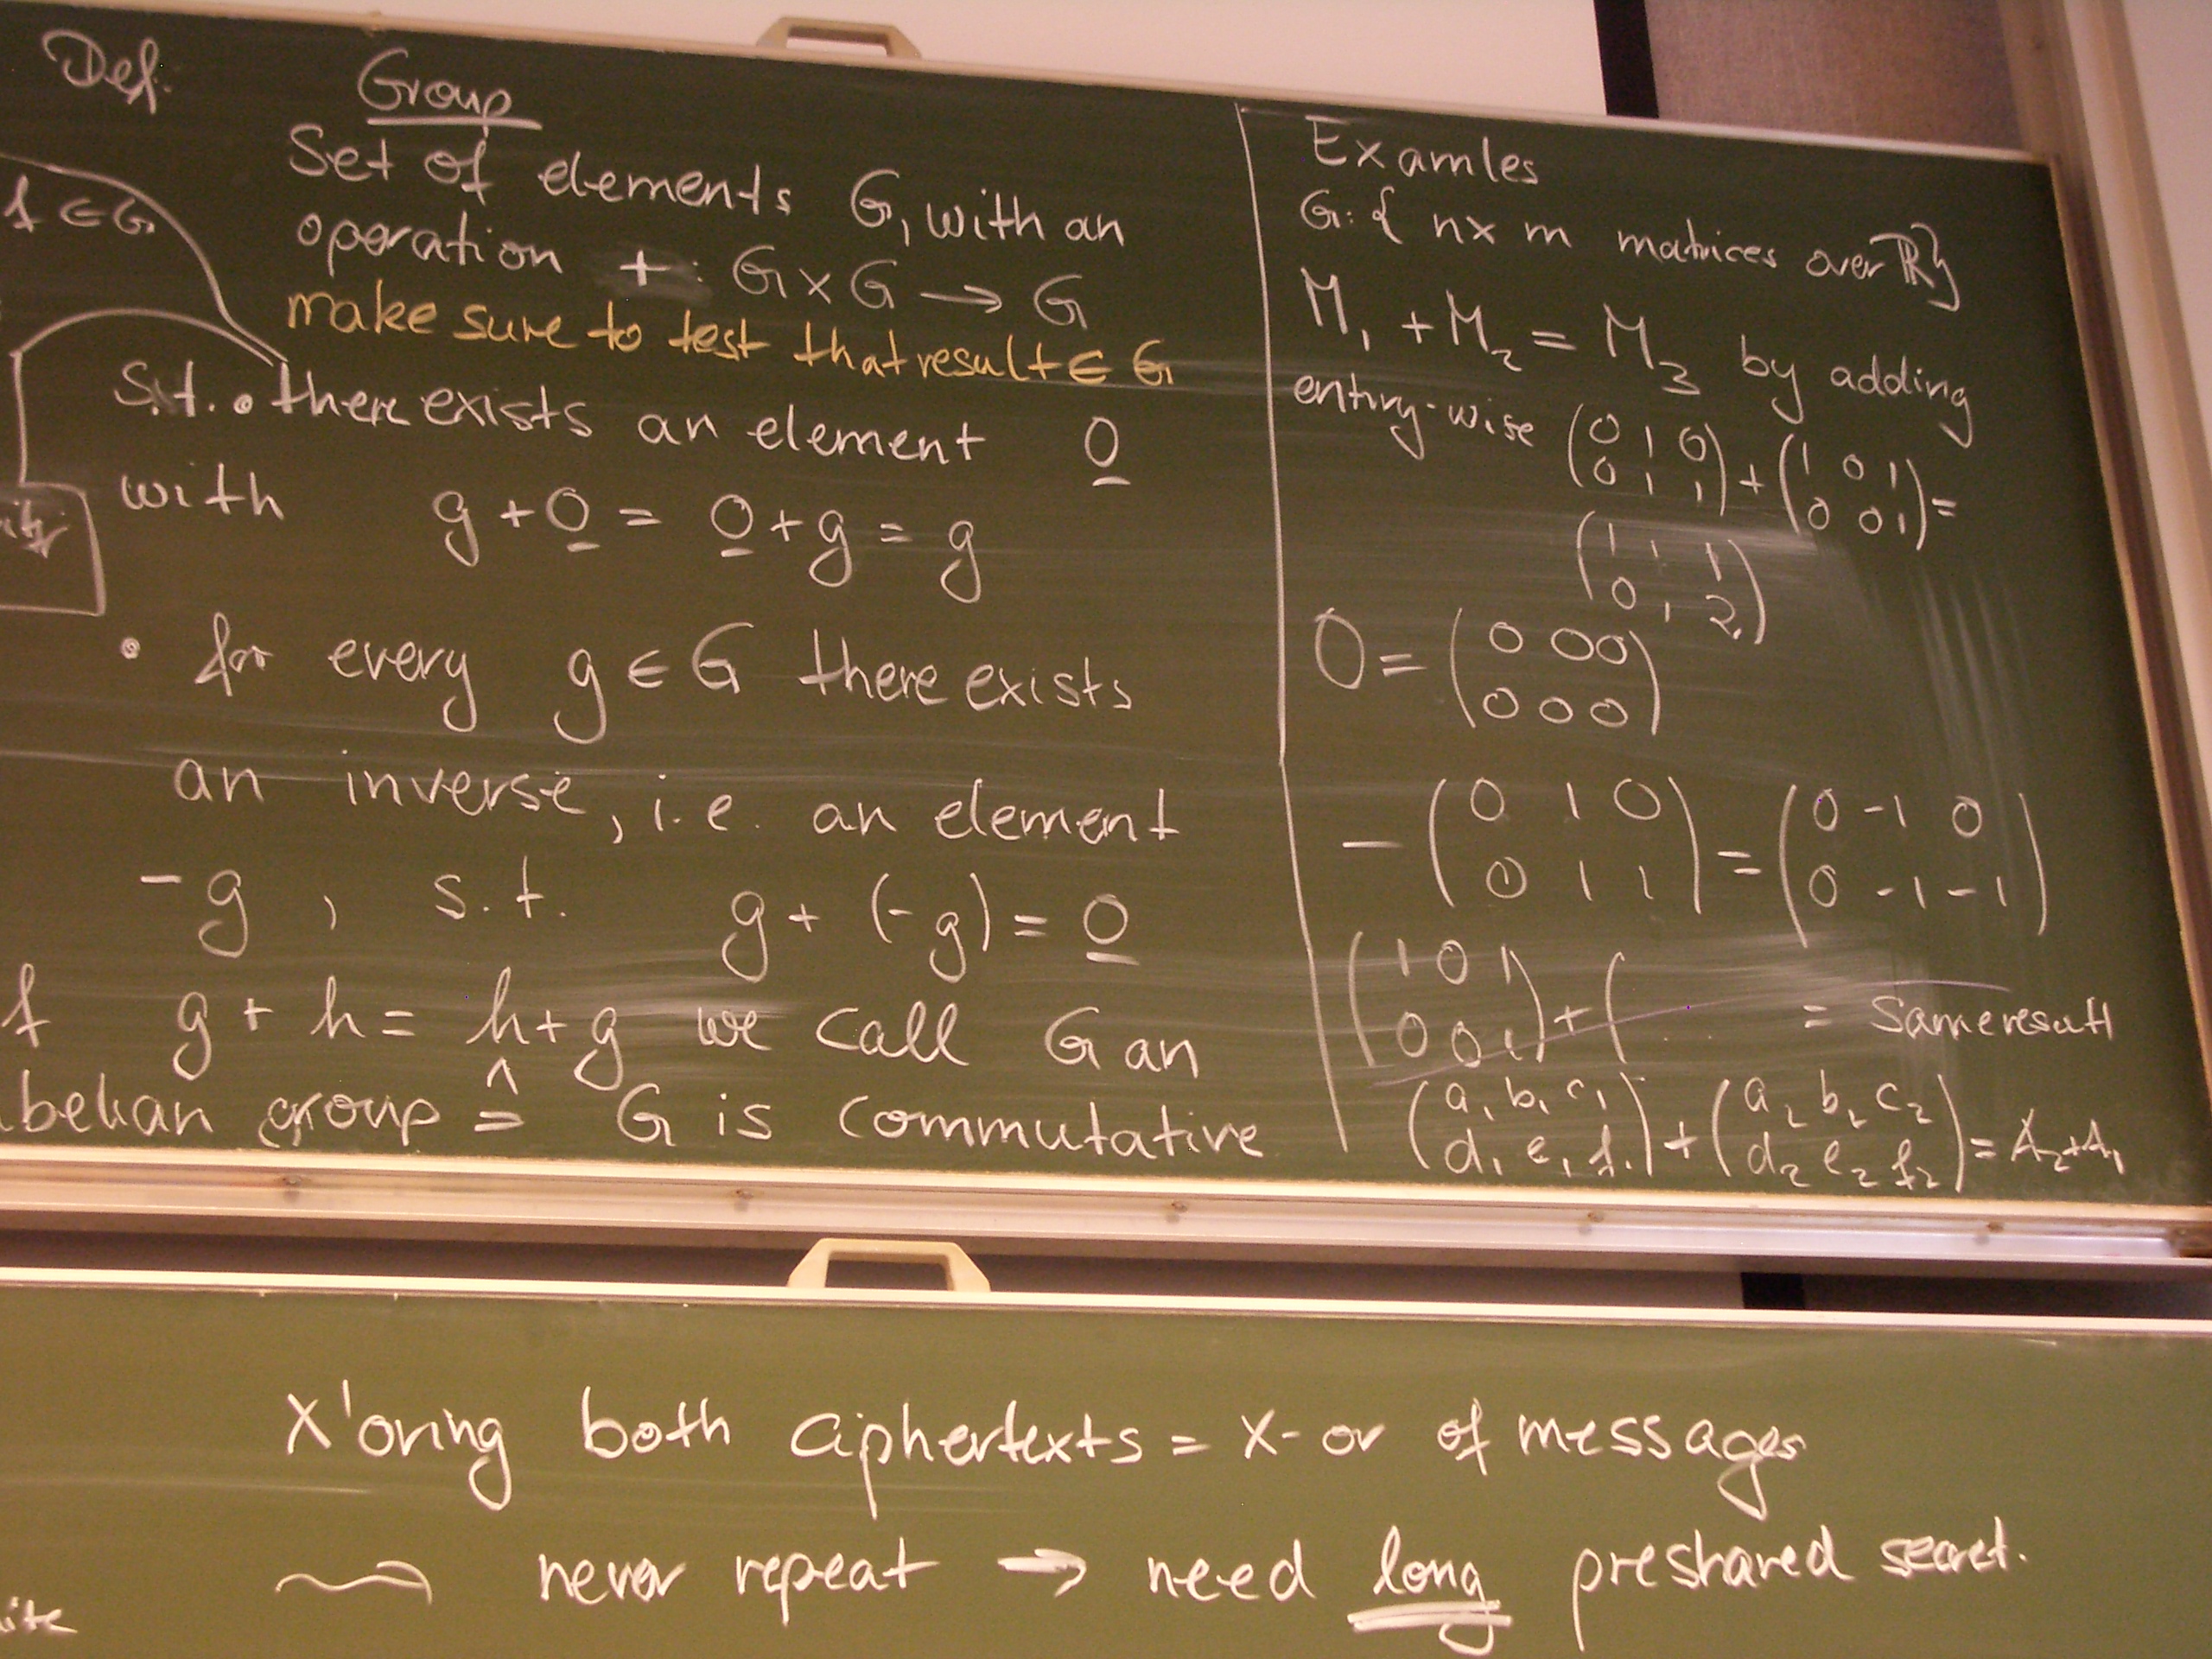 Def: Group
Set of elements G, with an
f ∈ G
operation + : G x G → G
make sure to test that result ∈ G
s.t. • there exists an element 0
with g + 0 = 0 + g = g
• for every g ∈ G there exists
an inverse, i.e. an element
-g, s.t. g + (-g) = 0
g + h = h + g we call G an
belian group ≙ G is commutative
Examles
G: { n x m matrices over ℝ}
M₁ + M₂ = M₃ by adding
entry-wise (0 1 0 / 0 1 1) + (1 0 1 / 0 0 1) =
(1 1 1 / 0 1 2)
0 = (0 0 0 / 0 0 0)
- (0 1 0 / 0 1 1) = (0 -1 0 / 0 -1 -1)
(1 0 1 / 0 0 1) + ( ... = same result
(a₁ b₁ c₁ / d₁ e₁ f₁) + (a₂ b₂ c₂ / d₂ e₂ f₂) = A₂+A₁
X'oring both ciphertexts = X-or of messages
never repeat → need long preshared secret.